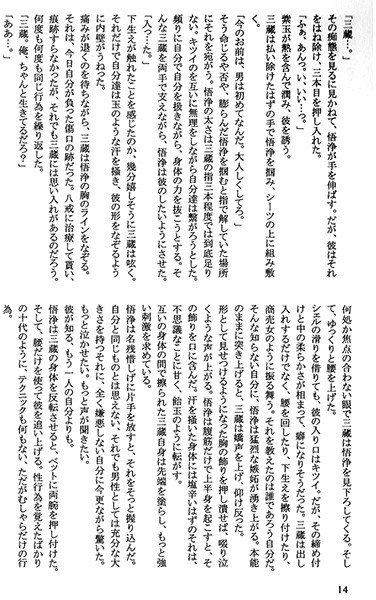 「三蔵…。」
その痴態を見るに見かねて、悟浄が手を伸ばす。だが、彼はそれ
をはね除け、三本目を押し入れた。
「ふぁ、あんっ。いい…っ。」
紫玉が熱を含んで潤み、彼を誘う。
三蔵は払い除けたはずの手で悟浄を掴み、シーツの上に組み敷
く。
「今のお前は、男は初めてなんだ。大人しくしてろ。」
そう命じるや否や、膨らんだ悟浄を掴むと指で解していた場所
にそれを宛がう。悟浄の太さは三蔵の指三本程度では到底足り
ない。キツイのを互いに無理をしながら自分達は繋がろうとした。
頻りに自分で自分を扱きながら、身体の力を抜こうとする。そ
んな三蔵を両手で支えながら、悟浄は彼のしたいようにさせた。
「入っ…た。」
下生えが触れたことを感じたのか、幾分嬉しそうに三蔵は呟く。
それだけで自分達は玉のような汗を掻き、彼の形をなぞるよう
に内壁がうねった。
痛みが退くのを待ちながら、三蔵は悟浄の胸のラインをなぞる。
それは、今日自分が負った傷口の跡だった。八戒に治療して貰い、
痕跡すらなかったが、それでも三蔵には思い入れがあるのだろう。
何度も何度も同じ行為を繰り返した。
「三蔵。俺、ちゃんと生きてるだろ?」
「ああ…。」
何処か焦点の合わない眼で三蔵は悟浄を見下ろしてくる。そし
て、ゆっくりと腰を上げた。
ジェルの滑りを借りても、彼の入り口はキツイ。だが、その締め付
けと中の柔らかさが相まって、癖になりそうだった。三蔵は出し
入れするだけでなく、腰を回したり、下生えを擦り付けたり、
商売女のように振る舞う。それを教えたのは誰であろう自分だ。
そんな知らない自分に、悟浄は猛烈な嫉妬が湧き上がる。本能
のままに突き上げると、三蔵は嬌声を上げ、仰け反った。
形として見せつけるようになった胸の飾りを押し潰せば、啜り泣
くような声が上がる。悟浄は腹筋だけで上半身を起こすと、そ
の飾りを口に含んだ。汗を掻いた身体には塩辛いはずのそれは、
不思議なことに甘く、飴玉のように転がす。
互いの身体の間で擦られた三蔵自身は先端を塗らし、もっと強
い刺激を求めている。
悟浄は名残惜しげに片手を放すと、それをそっと握り込んだ。
自分と同じものとは思えない、それでも男性としては充分な大
きさを持つそれに、全く嫌悪しない自分に今更ながら驚いた。
もっと泣かせたい。もっと声が聞きたい。
彼が知る、もう一人の自分よりも。
悟浄は三蔵の身体を反転させると、ベットに両腕を押し付けた。
そして、腰だけを使って彼を追い上げる。性行為を覚えたばかり
の十代のように、テクニックも何もない、ただがむしゃらだけの行
為。
14